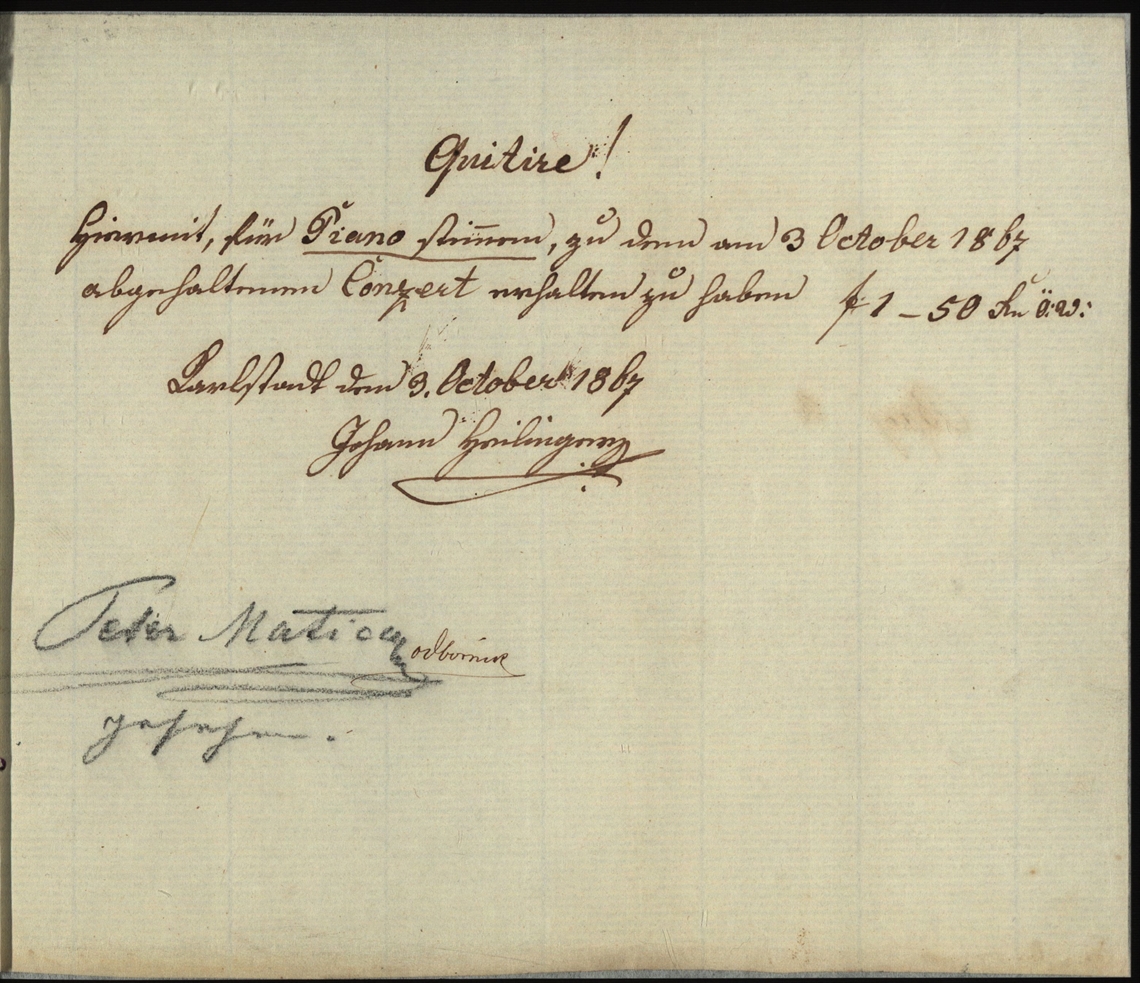 Quitire!
Hiermit, für Piano stimmen, zu dem am 3 October 1867
abgehaltenen Conzert erhalten zu haben f 1 – 50 Kr ö:W:
Karlstadt den 3. October 1867
Johann Heilinger
Peter Matica odbornik
gesehen.